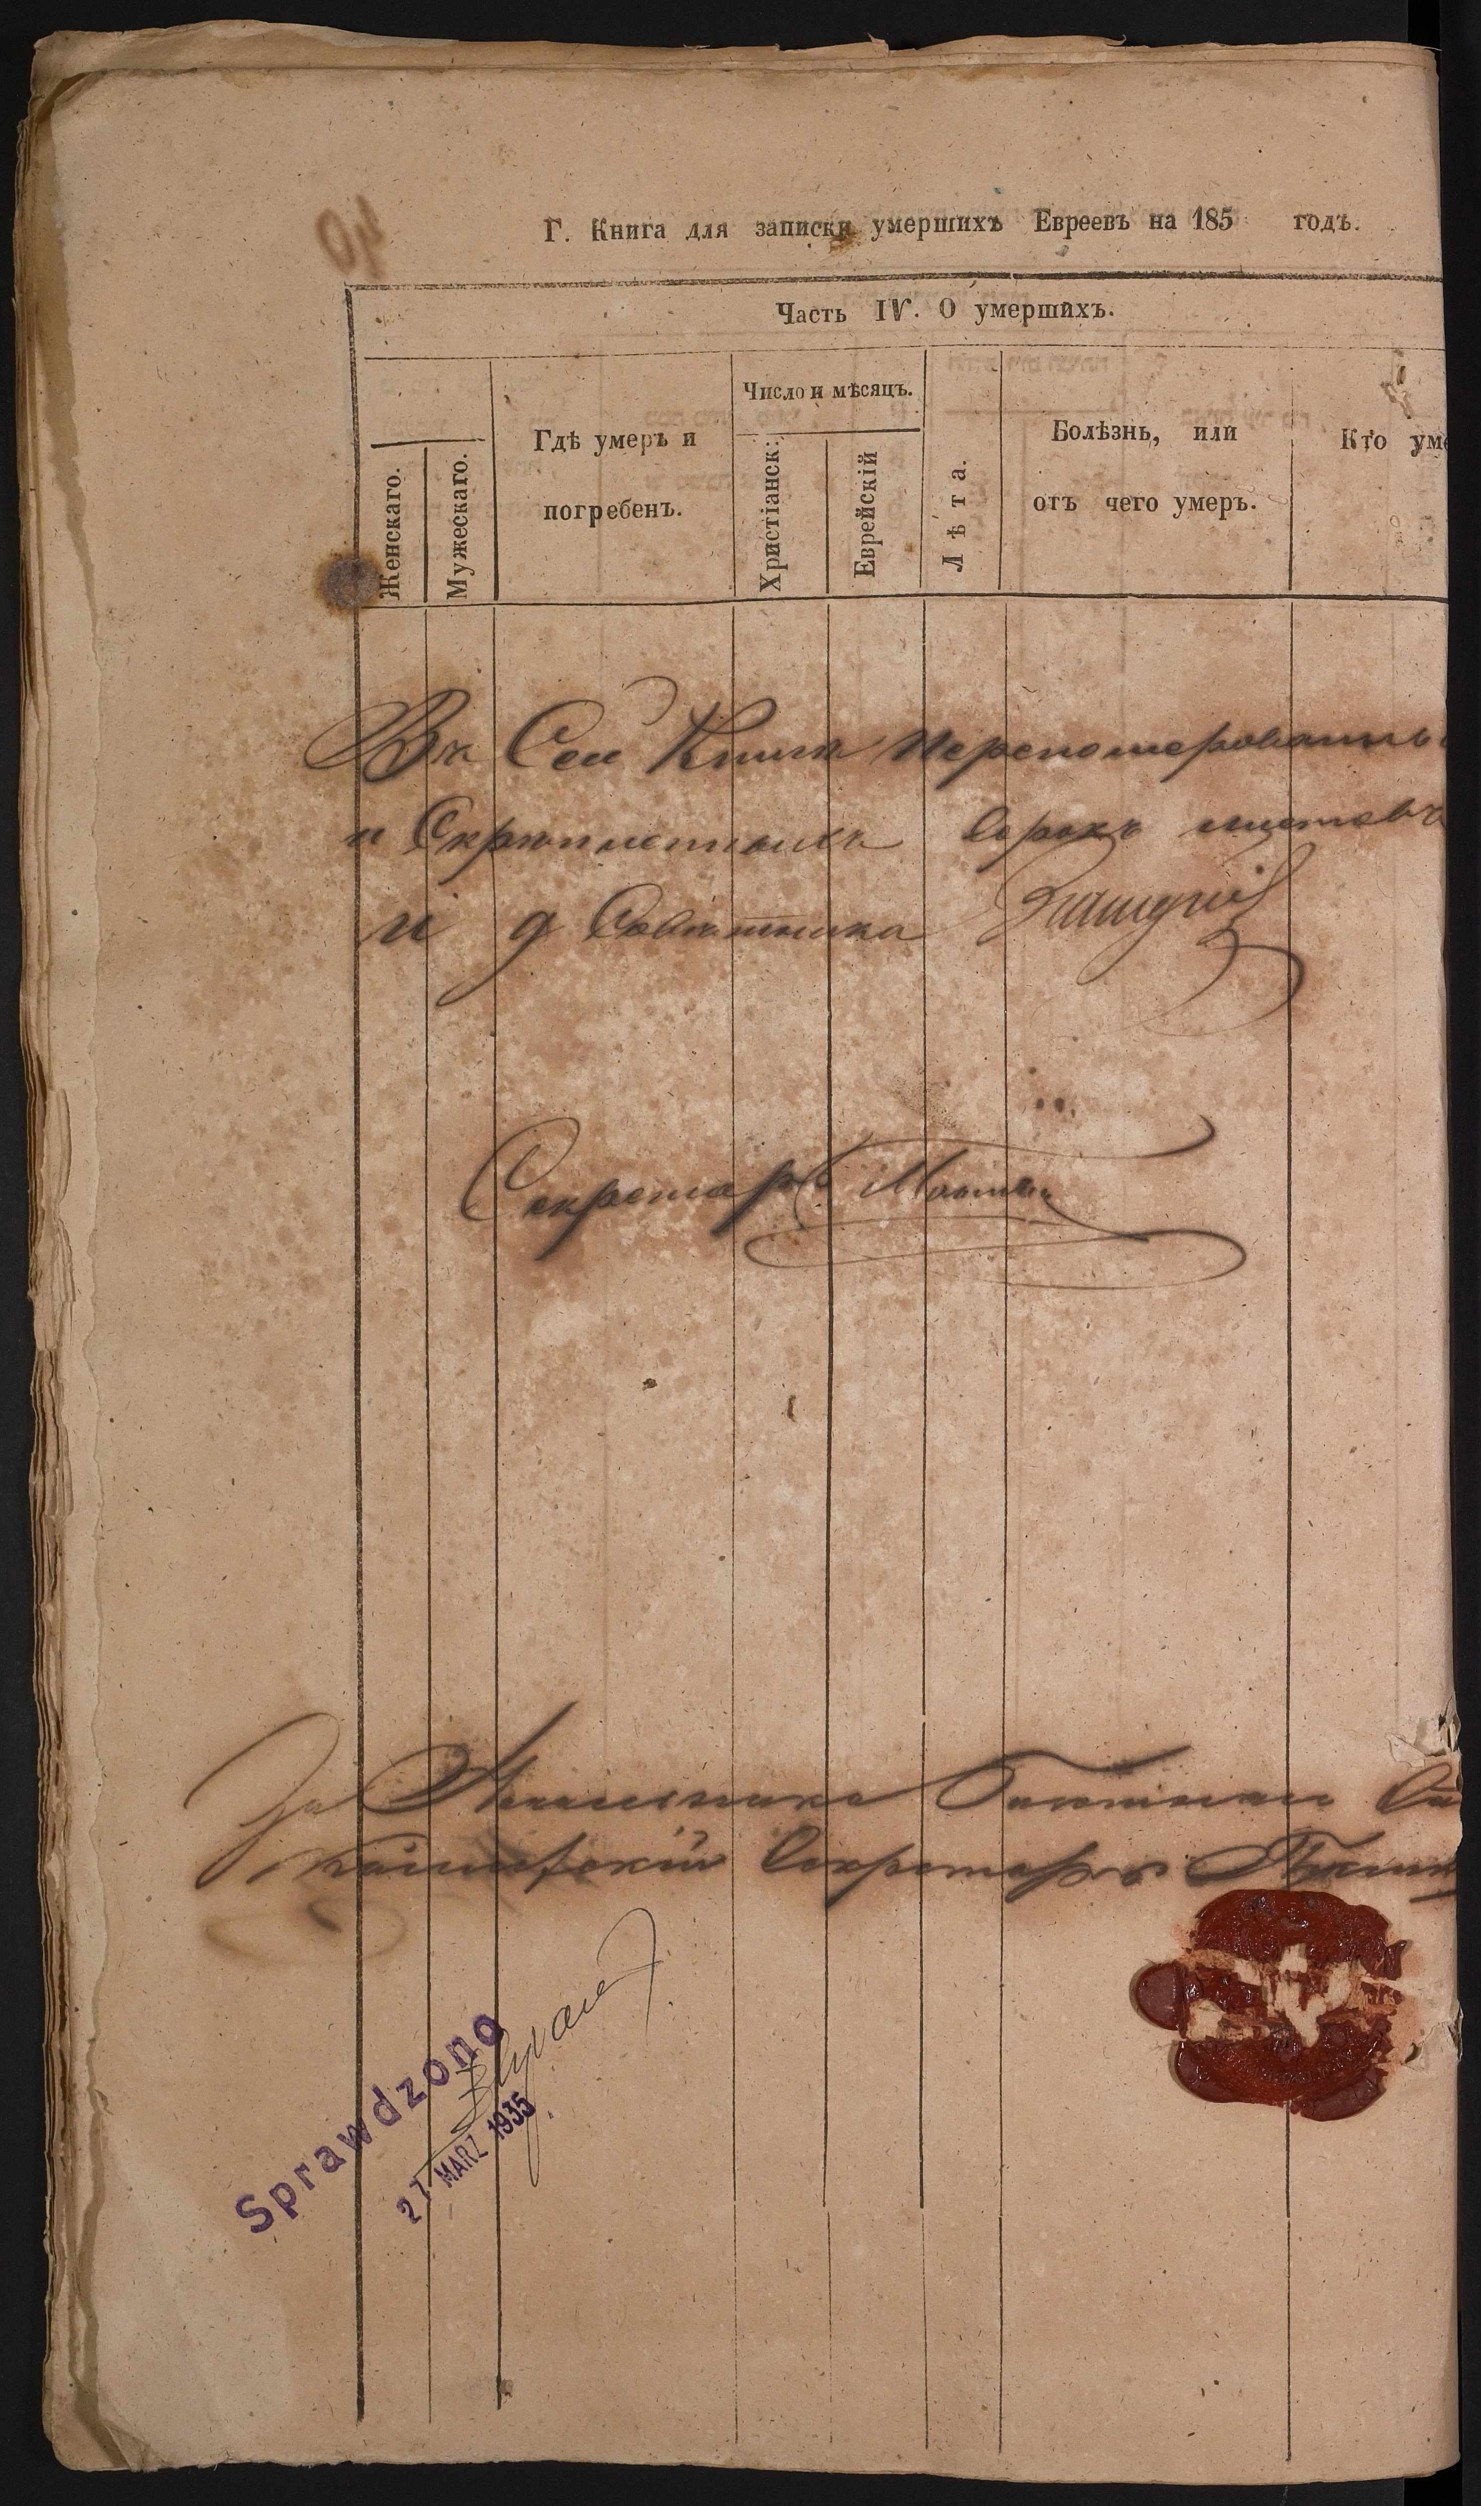 Г. Книга для записки умершихъ Евреевъ на 185 годъ.
Часть IV. О умершихъ.
Женскаго.
Мужескаго.
Гдѣ умеръ и
погребенъ.
Число и мѣсяцъ.
Христіанск:
Еврейскій
Лѣта.
Болѣзнь, или
отъ чего умеръ.
Кто уме
Въ Сей Книге переномерованны
и Скрепленныхъ Сорокъ листовъ
и д Советника
Секретарь
За Начальника
Секретарь
Sprawdzono
27 MARZ 1935